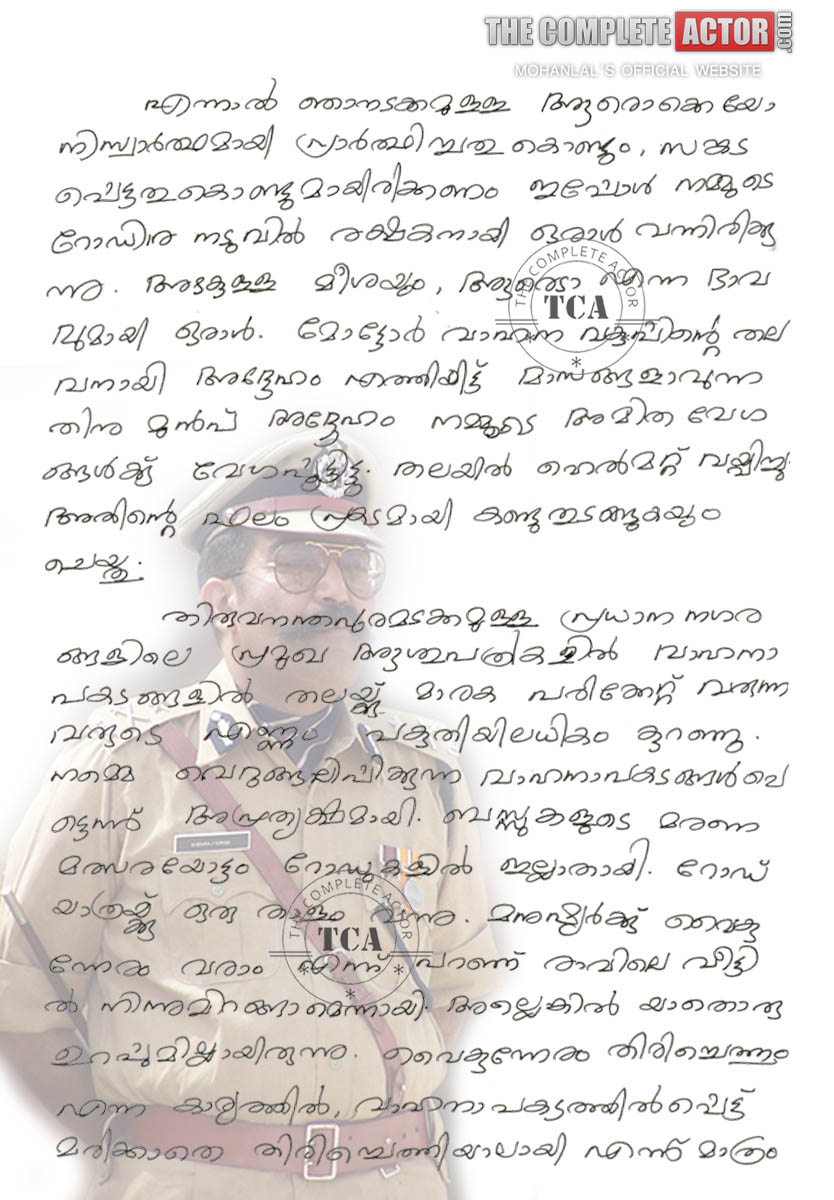 THE COMPLETE ACTOR.com
MOHANLAL'S OFFICIAL WEBSITE
എന്നാൽ ഞാനടക്കമുള്ള ആരൊക്കെയോ
നിസ്വാർത്ഥമായി പ്രാർത്ഥിച്ചതു കൊണ്ടും, സങ്കട
പ്പെട്ടതുകൊണ്ടുമായിരിക്കണം ഇപ്പോൾ നമ്മുടെ
റോഡിനു നടുവിൽ രക്ഷകനായി ഒരാൾ വന്നിരിക്കു
ന്നു. അഴകുള്ള മീശയും, ആരെടാ എന്ന ഭാവ
വുമായി ഒരാൾ. മോട്ടോർ വാഹന വകുപ്പിന്റെ തല
വനായി അദ്ദേഹം എത്തിയിട്ട് മാസങ്ങളാവുന്ന
തിനു മുൻപ് അദ്ദേഹം നമ്മുടെ അമിത വേഗ
ങ്ങൾക്ക് വേഗപ്പൂട്ടിട്ടു. തലയിൽ ഹെൽമറ്റ് വയ്പ്പിച്ചു.
അതിന്റെ ഫലം പ്രകടമായി കണ്ടുതുടങ്ങുകയും
ചെയ്തു.
തിരുവനന്തപുരമടക്കമുള്ള പ്രധാന നഗര
ങ്ങളിലെ പ്രമുഖ ആശുപത്രികളിൽ വാഹനാ
പകടങ്ങളിൽ തലയ്ക്കു മാരക പരിക്കേറ്റ് വരുന്ന
വരുടെ എണ്ണം പകുതിയിലധികം കുറഞ്ഞു.
നമ്മെ വെറുങ്ങലിപ്പിക്കുന്ന വാഹനാപകടങ്ങൾ പെ
ട്ടെന്ന് അപ്രത്യക്ഷമായി. ബസ്സുകളുടെ മരണ
മത്സരയോട്ടം റോഡുകളിൽ ഇല്ലാതായി. റോഡ്
യാത്രയ്ക്ക് ഒരു താളം വന്നു. മനുഷ്യർക്ക് വൈകു
ന്നേരം വരാം എന്ന് പറഞ്ഞ് രാവിലെ വീട്ടി
ൽ നിന്നുമിറങ്ങാമെന്നായി. അല്ലെങ്കിൽ യാതൊരു
ഉറപ്പുമില്ലായിരുന്നു. വൈകുന്നേരം തിരിച്ചെത്തും
എന്ന കാര്യത്തിൽ, വാഹനാപകടത്തിൽപ്പെട്ട്
മരിക്കാതെ തിരിച്ചെത്തിയാലായി എന്ന് മാത്രം
THE COMPLETE ACTOR
TCA
THE COMPLETE ACTOR
TCA